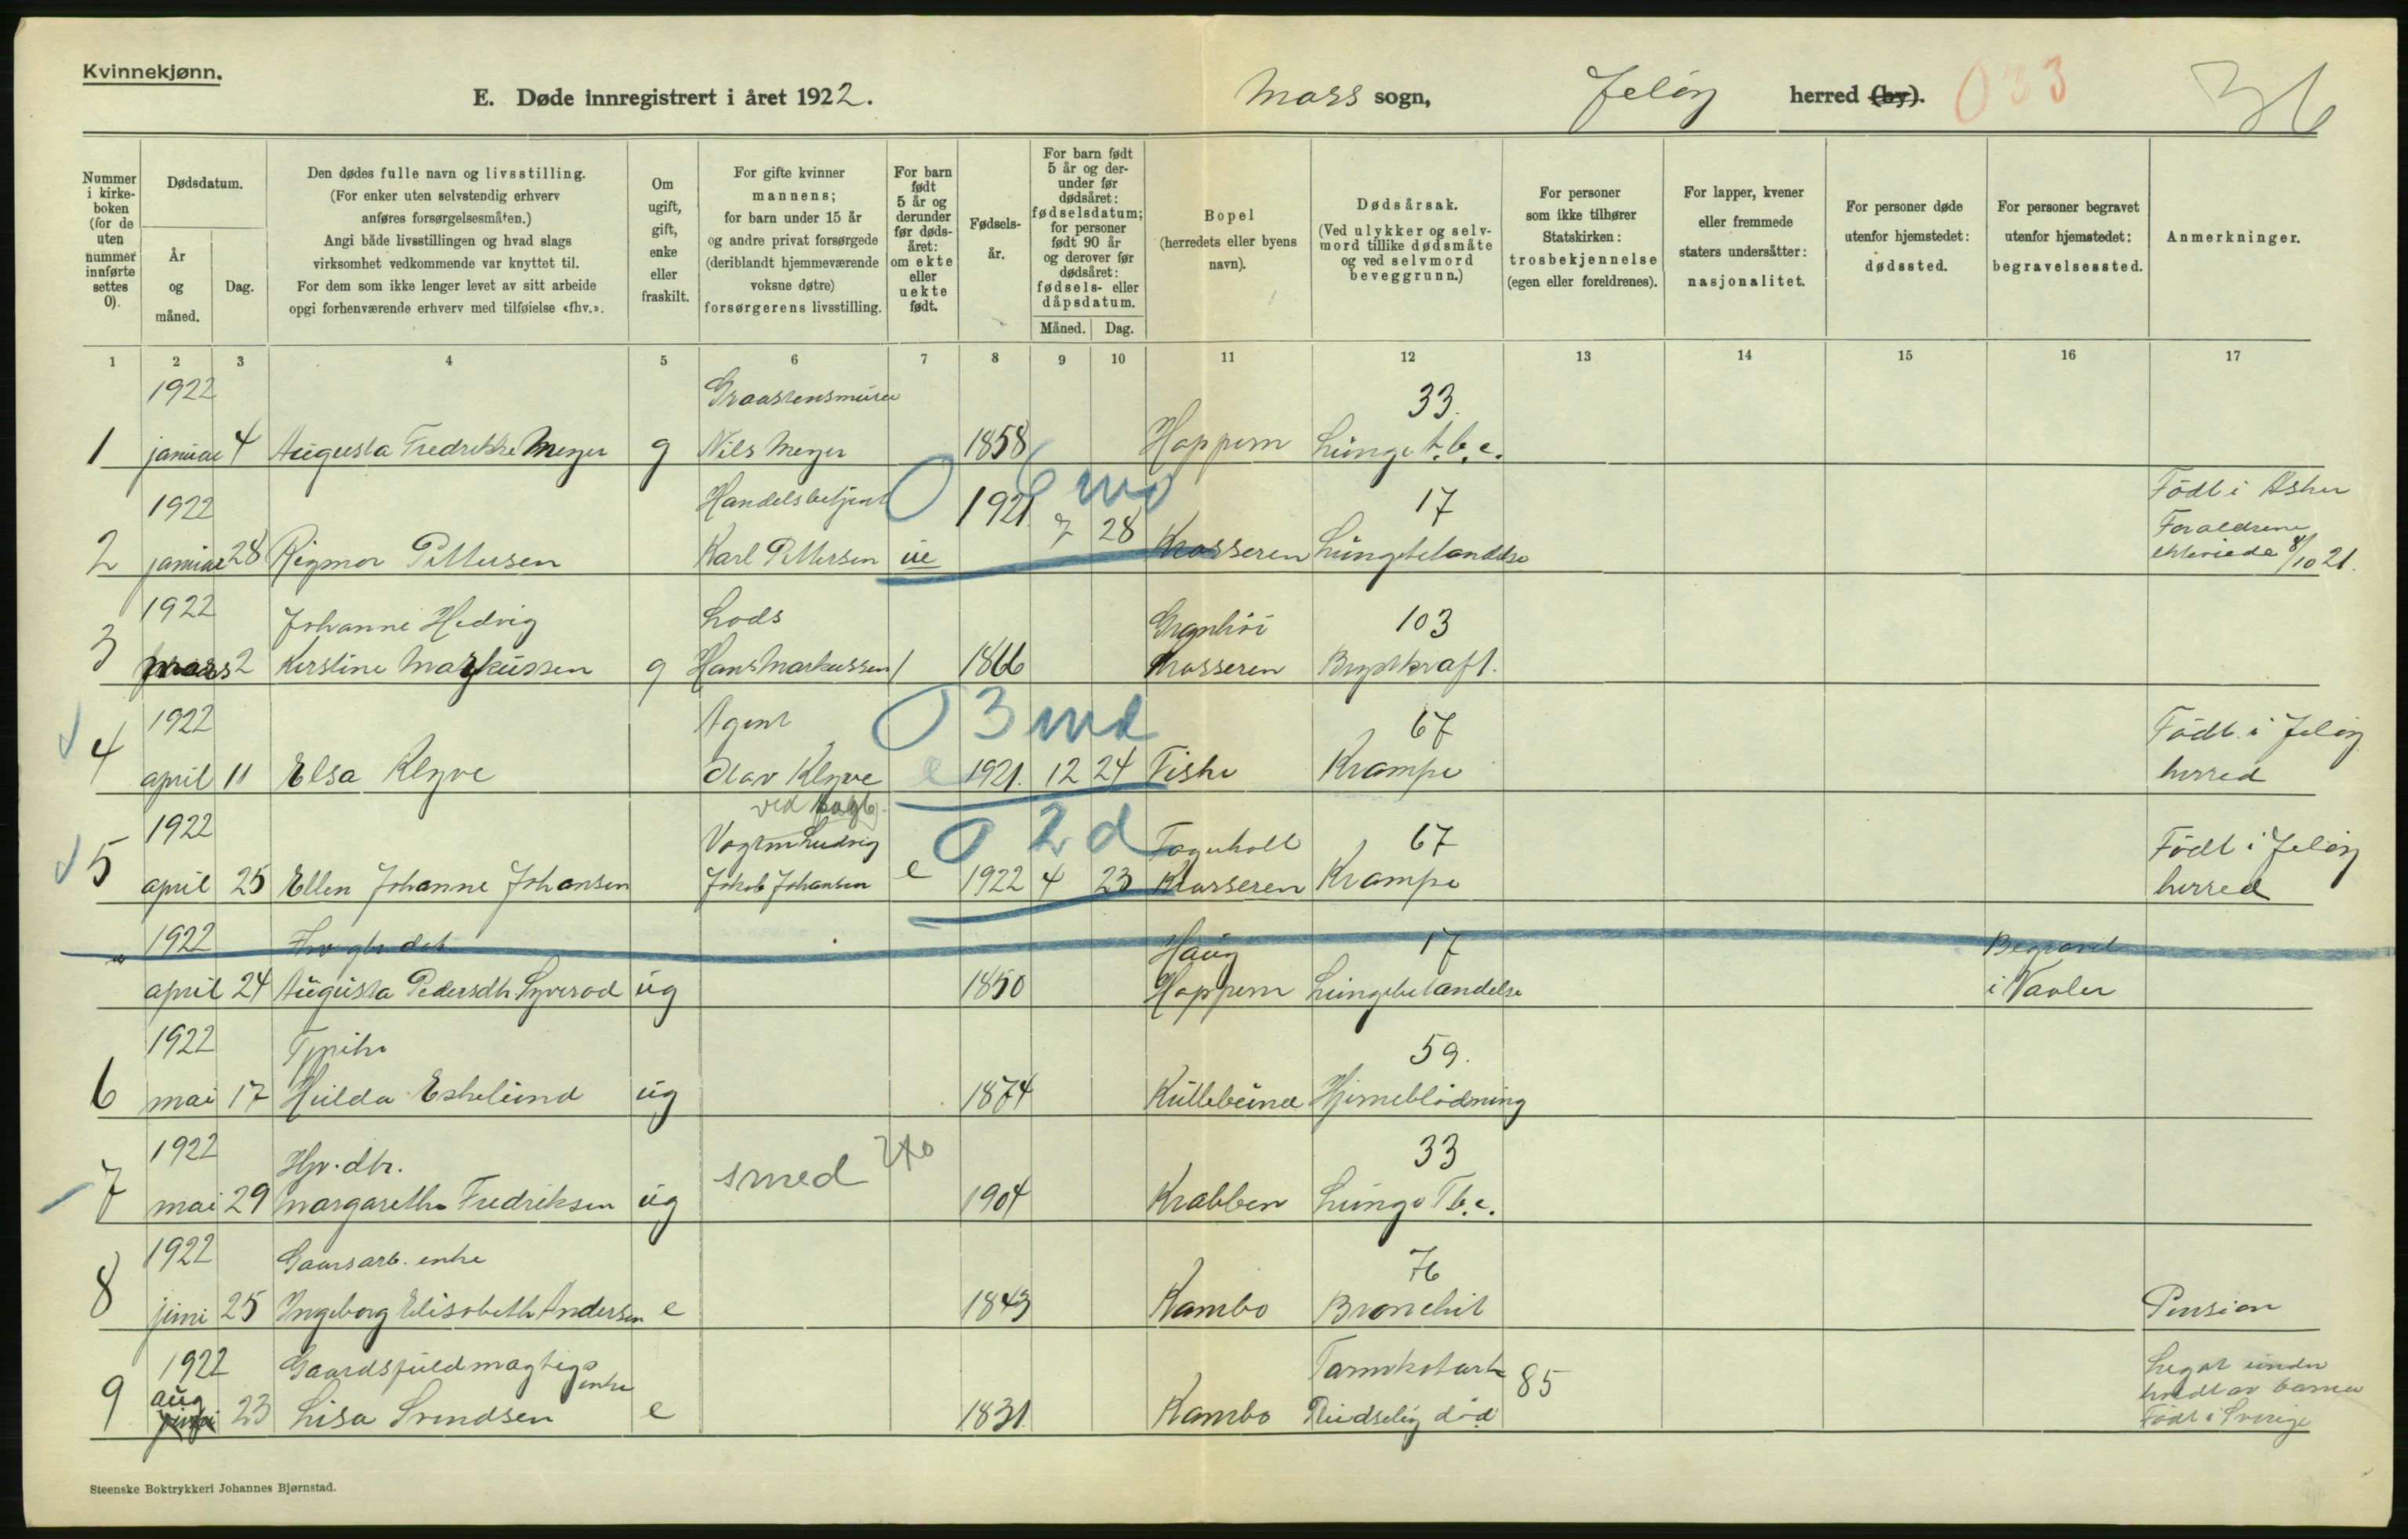 Kvinnekjønn.
E. Døde innregistrert i året 1922.
Moss sogn, Jeløy herred (by). 033
36
Nummer i kirkeboken (for de uten nummer innførte settes 0).
Dødsdatum.
År og måned.
Dag.
Den dødes fulle navn og livsstilling.
(For enker uten selvstendig erhverv
anføres forsørgelsesmåten.)
Angi både livsstillingen og hvad slags
virksomhet vedkommende var knyttet til.
For dem som ikke lenger levet av sitt arbeide
opgi forhenværende erhverv med tilføielse «fhv.».
Om ugift, gift, enke eller fraskilt.
For gifte kvinner
mannens;
for barn under 15 år
og andre privat forsørgede
(deriblandt hjemmeværende
voksne døtre)
forsørgerens livsstilling.
For barn født 5 år og derunder før dødsåret: om ekte eller uekte født.
Fødselsår.
For barn født 5 år og derunder før dødsåret: fødselsdatum; for personer født 90 år og derover før dødsåret: fødsels- eller dåpsdatum.
Måned. Dag.
Bopel
(herredets eller byens
navn).
Dødsårsak.
(Ved ulykker og selvmord tillike dødsmåte og ved selvmord beveggrunn.)
For personer
som ikke tilhører
Statskirken:
trosbekjennelse
(egen eller foreldrenes).
For lapper, kvener
eller fremmede
staters undersåtter:
nasjonalitet.
For personer døde
utenfor hjemstedet:
dødssted.
For personer begravet
utenfor hjemstedet:
begravelsessted.
Anmerkninger.
1 2 3 4 5 6 7 8 9 10 11 12 13 14 15 16 17
1922 33.
1 januar 4 Augusta Fredrikke Meyer g Nils Meyer 1858 Hoppern Lunge t.b.c.
1922 Handelsbetjent 0 1921 6 md 17 Født i Asker
2 januar 28 Rigmor Pettersen Karl Pettersen ue 7 28 Krosseren Lungebetandelse Foraldrene
ekteviede 8/10 21.
1922 Johanne Hedvig Lods 103
3 mars 2 Kirstine Markussen g Hans Markussen 1866 Krosseren Brystkraft.
1922 Agent 0 3 md 67 Født i Jeløy
4 april 11 Elsa Klyve Olav Klyve e 1921. 12 24 Krampe herred
ved
1922 Ludvig 0 2 d 67 Født i Jeløy
5 april 25 Ellen Johanne Johansen Jakob Johansen e 1922 4 23 Krosseren Krampe herred
1922 Haug 17 Begravet
april 24 Augusta Pedersdtr. ug 1850 Hoppern Lungebetandelse i Vaaler
1922 59.
6 mai 17 Hulda Eskelund ug 1874 Kullebund Hjerneblødning
1922 dtr. smed 240 33
7 mai 29 Margarethe Fredriksen ug 1904 Krabben Lunge Tb.c.
1922 Gaarsarb. enke 76
8 juni 25 Ingeborg Elisabeth Andersen e 1843 Kambo Bronchit Pension
1922 Gaardsfuldmægtigs enke 85
9 aug 23 Lisa Svendsen e 1831. Kambo Pludselig død
Født i Sverige
Steenske Boktrykkeri Johannes Bjørnstad.